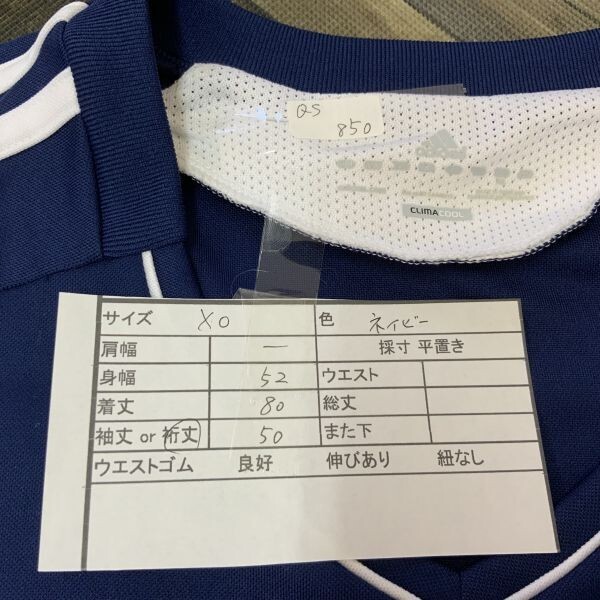 QS
850
adidas
CLIMACOOL
サイズ XO 色 ネイビー
肩幅 — 採寸 平置き
身幅 52 ウエスト
着丈 80 総丈
袖丈 or 裄丈 50 また下
ウエストゴム 良好 伸びあり 紐なし